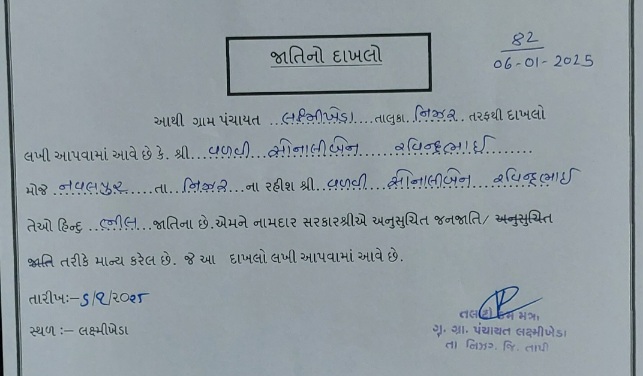 જાતિનો દાખલો
82
06-01-2025
આથી ગ્રામ પંચાયત લક્ષ્મીખેડા તાલુકા નિઝર તરફથી દાખલો
લખી આપવામાં આવે છે કે. શ્રી વળવી સોનાલીબેન રવિન્દ્રભાઈ
મોજે નવલપુર તા નિઝર ના રહીશ શ્રી વળવી સોનાલીબેન રવિન્દ્રભાઈ
તેઓ હિન્દુ ભીલ જાતિના છે. એમને નામદાર સરકારશ્રીએ અનુસુચિત જનજાતિ/ અનુસુચિત
જાતિ તરીકે માન્ય કરેલ છે. જે આ દાખલો લખી આપવામાં આવે છે.
તારીખઃ- ૬/૧/૨૦૨૫
સ્થળ :- લક્ષ્મીખેડા
તલાટી કમ મંત્રી
જુ. ગ્રા. પંચાયત લક્ષ્મીખેડા
તા નિઝર. જિ. તાપી